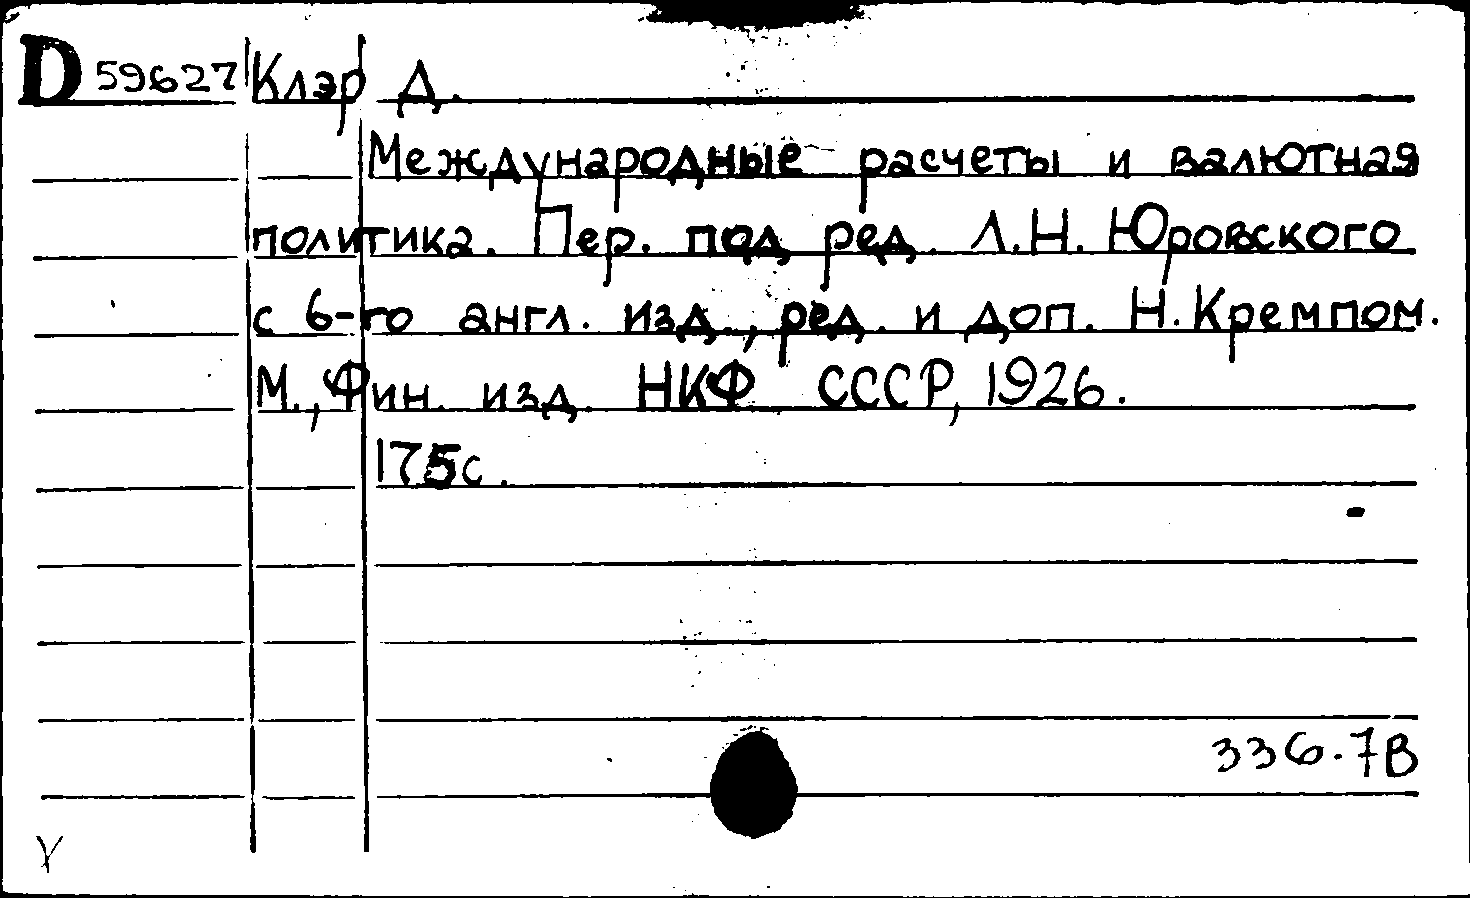 D 59627 Клэр Д.
Международные расчеты и валютная
политика. Пер. под ред. Л.Н. Юровского
с 6-го англ. изд., ред. и доп. Н. Кремпом.
М., Фин. изд. НКФ СССР, 1926.
175с.
336.7В